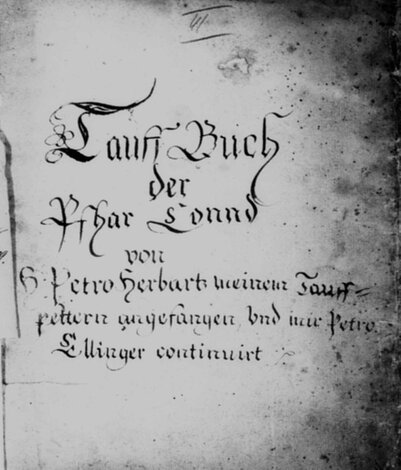 Tauff Buch
der
Pfhar Lonnd
von
H. Petro Herbart meinem Tauff=
pettern angefangen, Vnd mir Petro
Ellinger continuirt